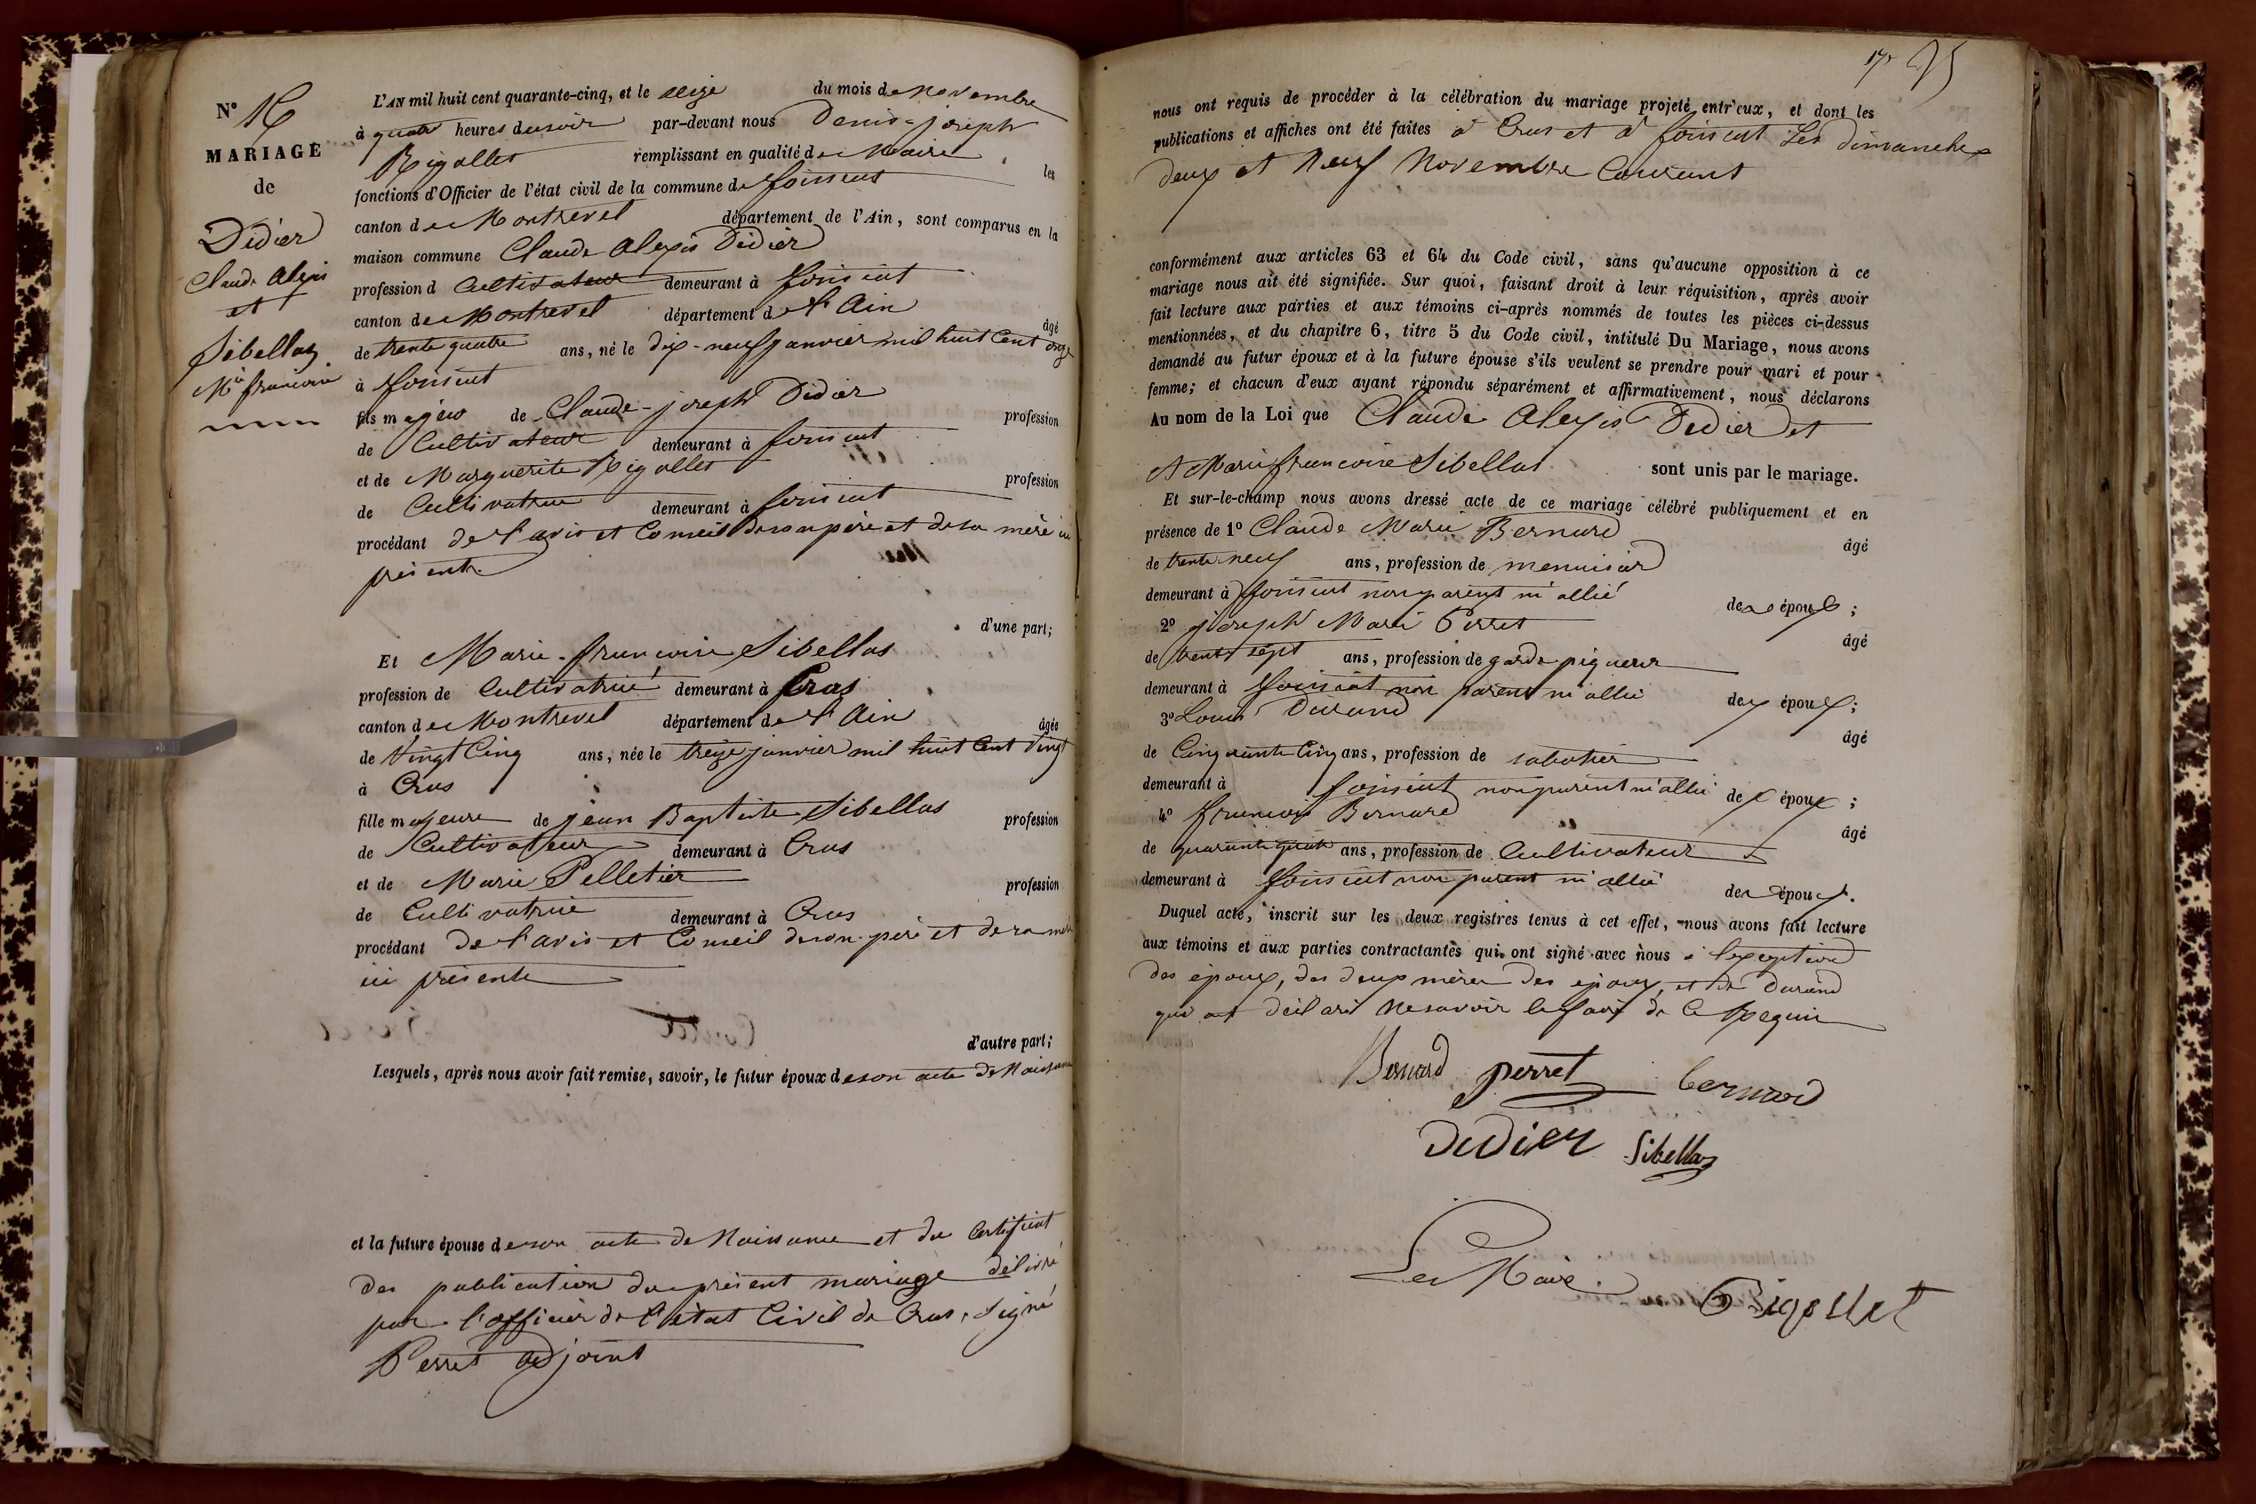 N° 16
MARIAGE
de
Didier
Claude Alexis
et
Sibellas
Mie francoise
L'AN mil huit cent quarante-cinq, et le seize du mois de Novembre
à quatre heures du soir par-devant nous Denis-joseph
Rigollet remplissant en qualité de Maire les
fonctions d'Officier de l'état civil de la commune de foissiat
canton de Montrevel département de l'Ain, sont comparus en la
maison commune Claude Alexis Didier
profession d Cultivateur demeurant à foissiat
canton de Montrevel département de l'Ain âgé
de trente quatre ans, né le dix-neuf janvier mil huit Cent onze
à foissiat
fils majeur de Claude-joseph Didier profession
de Cultivateur demeurant à foissiat
et de Marguerite Rigollet profession
de Cultivatrice demeurant à foissiat
procédant de l'avis et Conseil de son père et de sa mère ici
présents
d'une part;
Et Marie-francoise Sibellas
profession de Cultivatrice demeurant à Cras
canton de Montrevel département de l'Ain âgée
de Vingt Cinq ans, née le treize janvier mil huit Cent Vingt
à Cras
fille majeure de jean Baptiste Sibellas profession
de Cultivateur demeurant à Cras
et de Marie Pelletier profession
de Cultivatrice demeurant à Cras
procédant de l'avis et Conseil de son père et de sa mère
ici présents
d'autre part;
Lesquels, après nous avoir fait remise, savoir, le futur époux de son acte de Naissance
et la future épouse de son acte de Naissance et du Certificat
des publication du présent mariage délivré
par l'officier de l'état Civil de Cras, Signé
Perret adjoint
nous ont requis de procéder à la célébration du mariage projeté entr'eux, et dont les
publications et affiches ont été faites à Cras et à foissiat Les dimanches
deux et Neuf Novembre Courant
conformément aux articles 63 et 64 du Code civil, sans qu'aucune opposition à ce
mariage nous ait été signifiée. Sur quoi, faisant droit à leur réquisition, après avoir
fait lecture aux parties et aux témoins ci-après nommés de toutes les pièces ci-dessus
mentionnées, et du chapitre 6, titre 5 du Code civil, intitulé Du Mariage, nous avons
demandé au futur époux et à la future épouse s'ils veulent se prendre pour mari et pour
femme; et chacun d'eux ayant répondu séparément et affirmativement, nous déclarons
Au nom de la Loi que Claude Alexis Didier et
Marie francoise Sibellas sont unis par le mariage.
Et sur-le-champ nous avons dressé acte de ce mariage célébré publiquement et en
présence de 1° Claude Marie Bernard âgé
de trente neuf ans, profession de menuisier
demeurant à foissiat non parent ni allié des époux;
2° joseph Marie Perret âgé
de trente sept ans, profession de garde piqueur
demeurant à foissiat non parent ni allié des époux;
3° Louis Durand âgé
de Cinquante Cinq ans, profession de sabotier
demeurant à foissiat non parent ni allié des époux;
4° francois Bernard âgé
de quarante quatre ans, profession de Cultivateur
demeurant à foissiat non parent ni allié des époux.
Duquel acte, inscrit sur les deux registres tenus à cet effet, nous avons fait lecture
aux témoins et aux parties contractantes qui ont signé avec nous à l'exception
des époux, des deux mères des époux, et de Durand
qui ont déclaré Ne savoir le faire de Ce Requis
Bernard perret bernard
Didier Sibellas
Le Maire
Rigollet